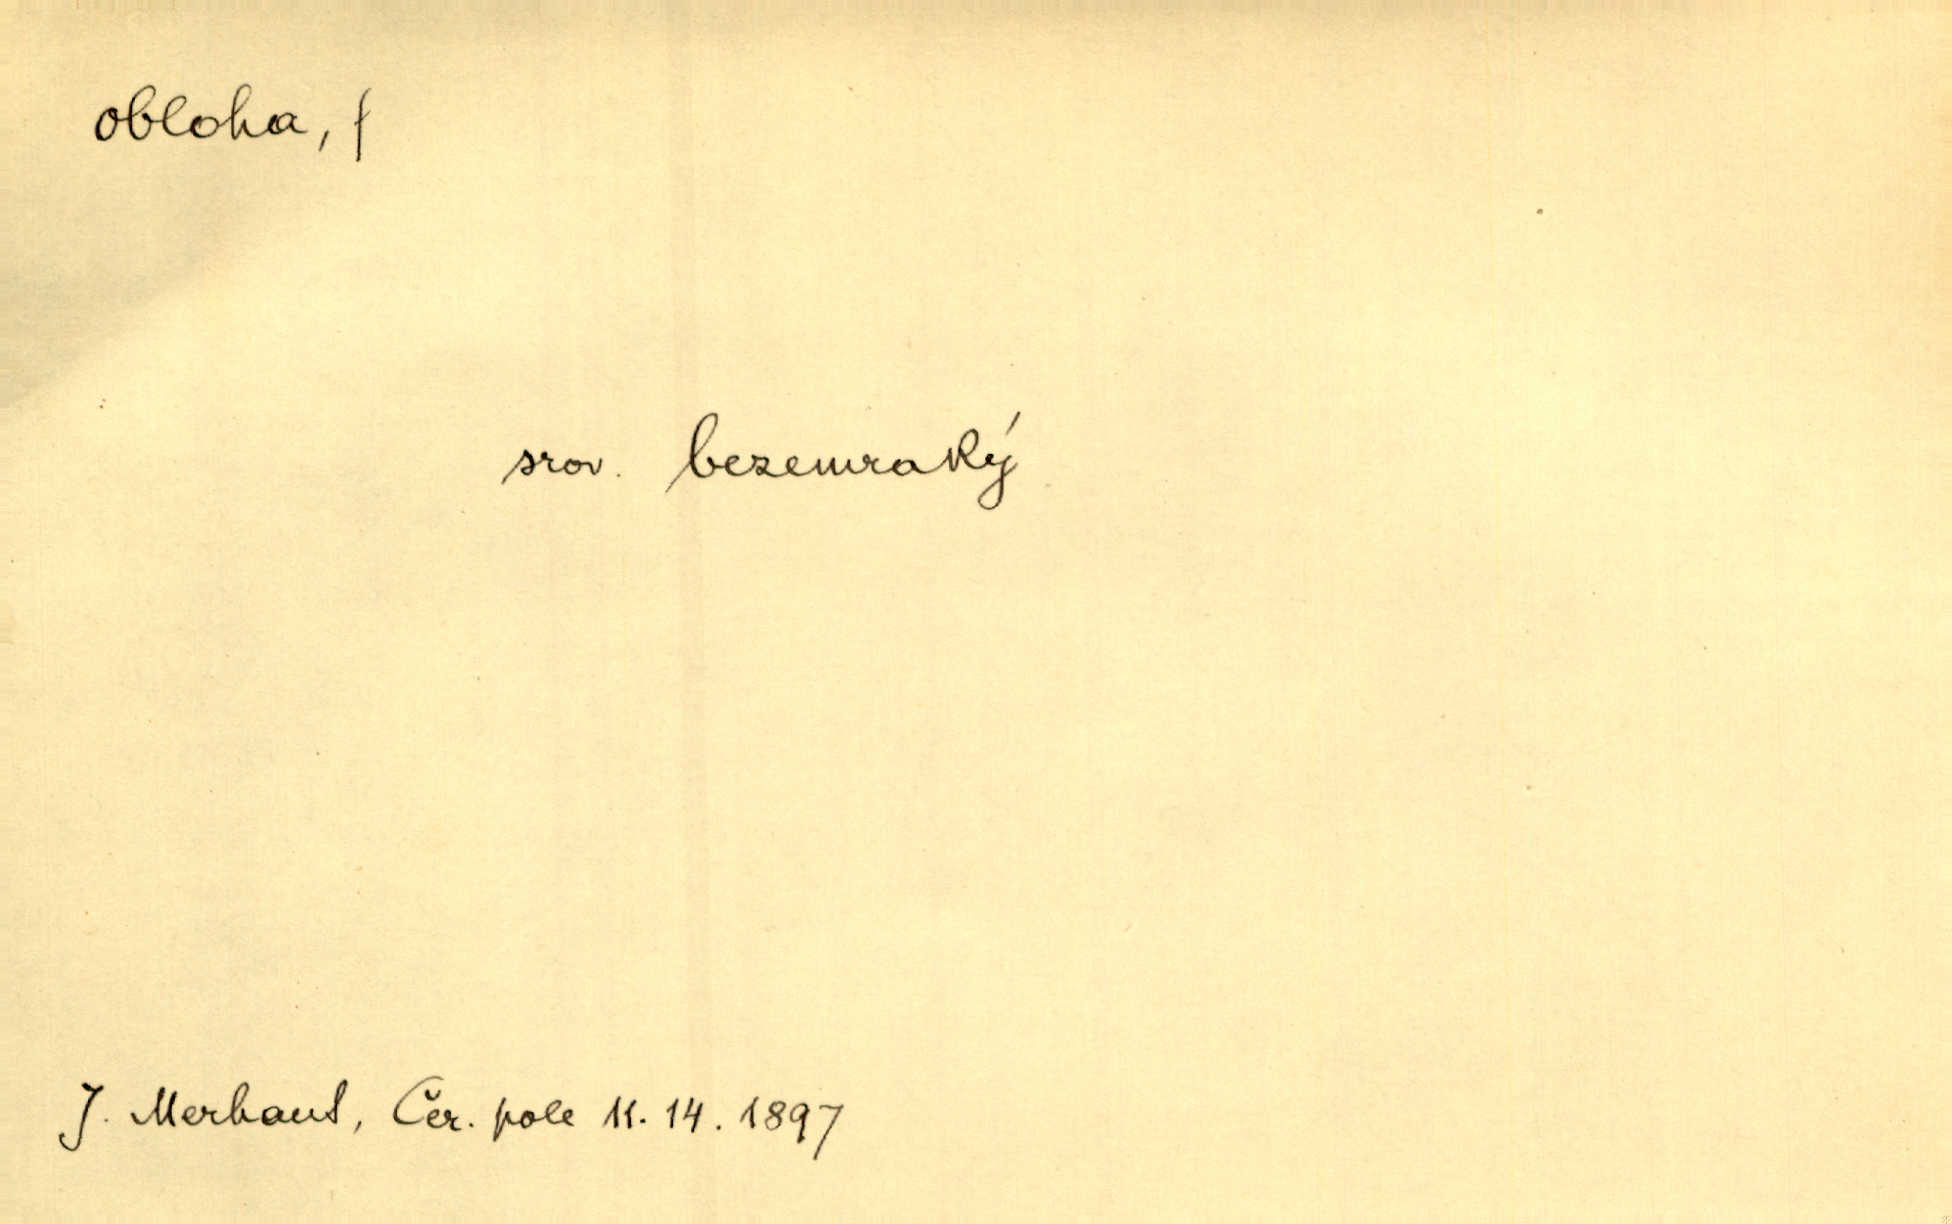 obloha, f
srov. bezemraký
J. Merhaut, Čer. pole 11. 14. 1897